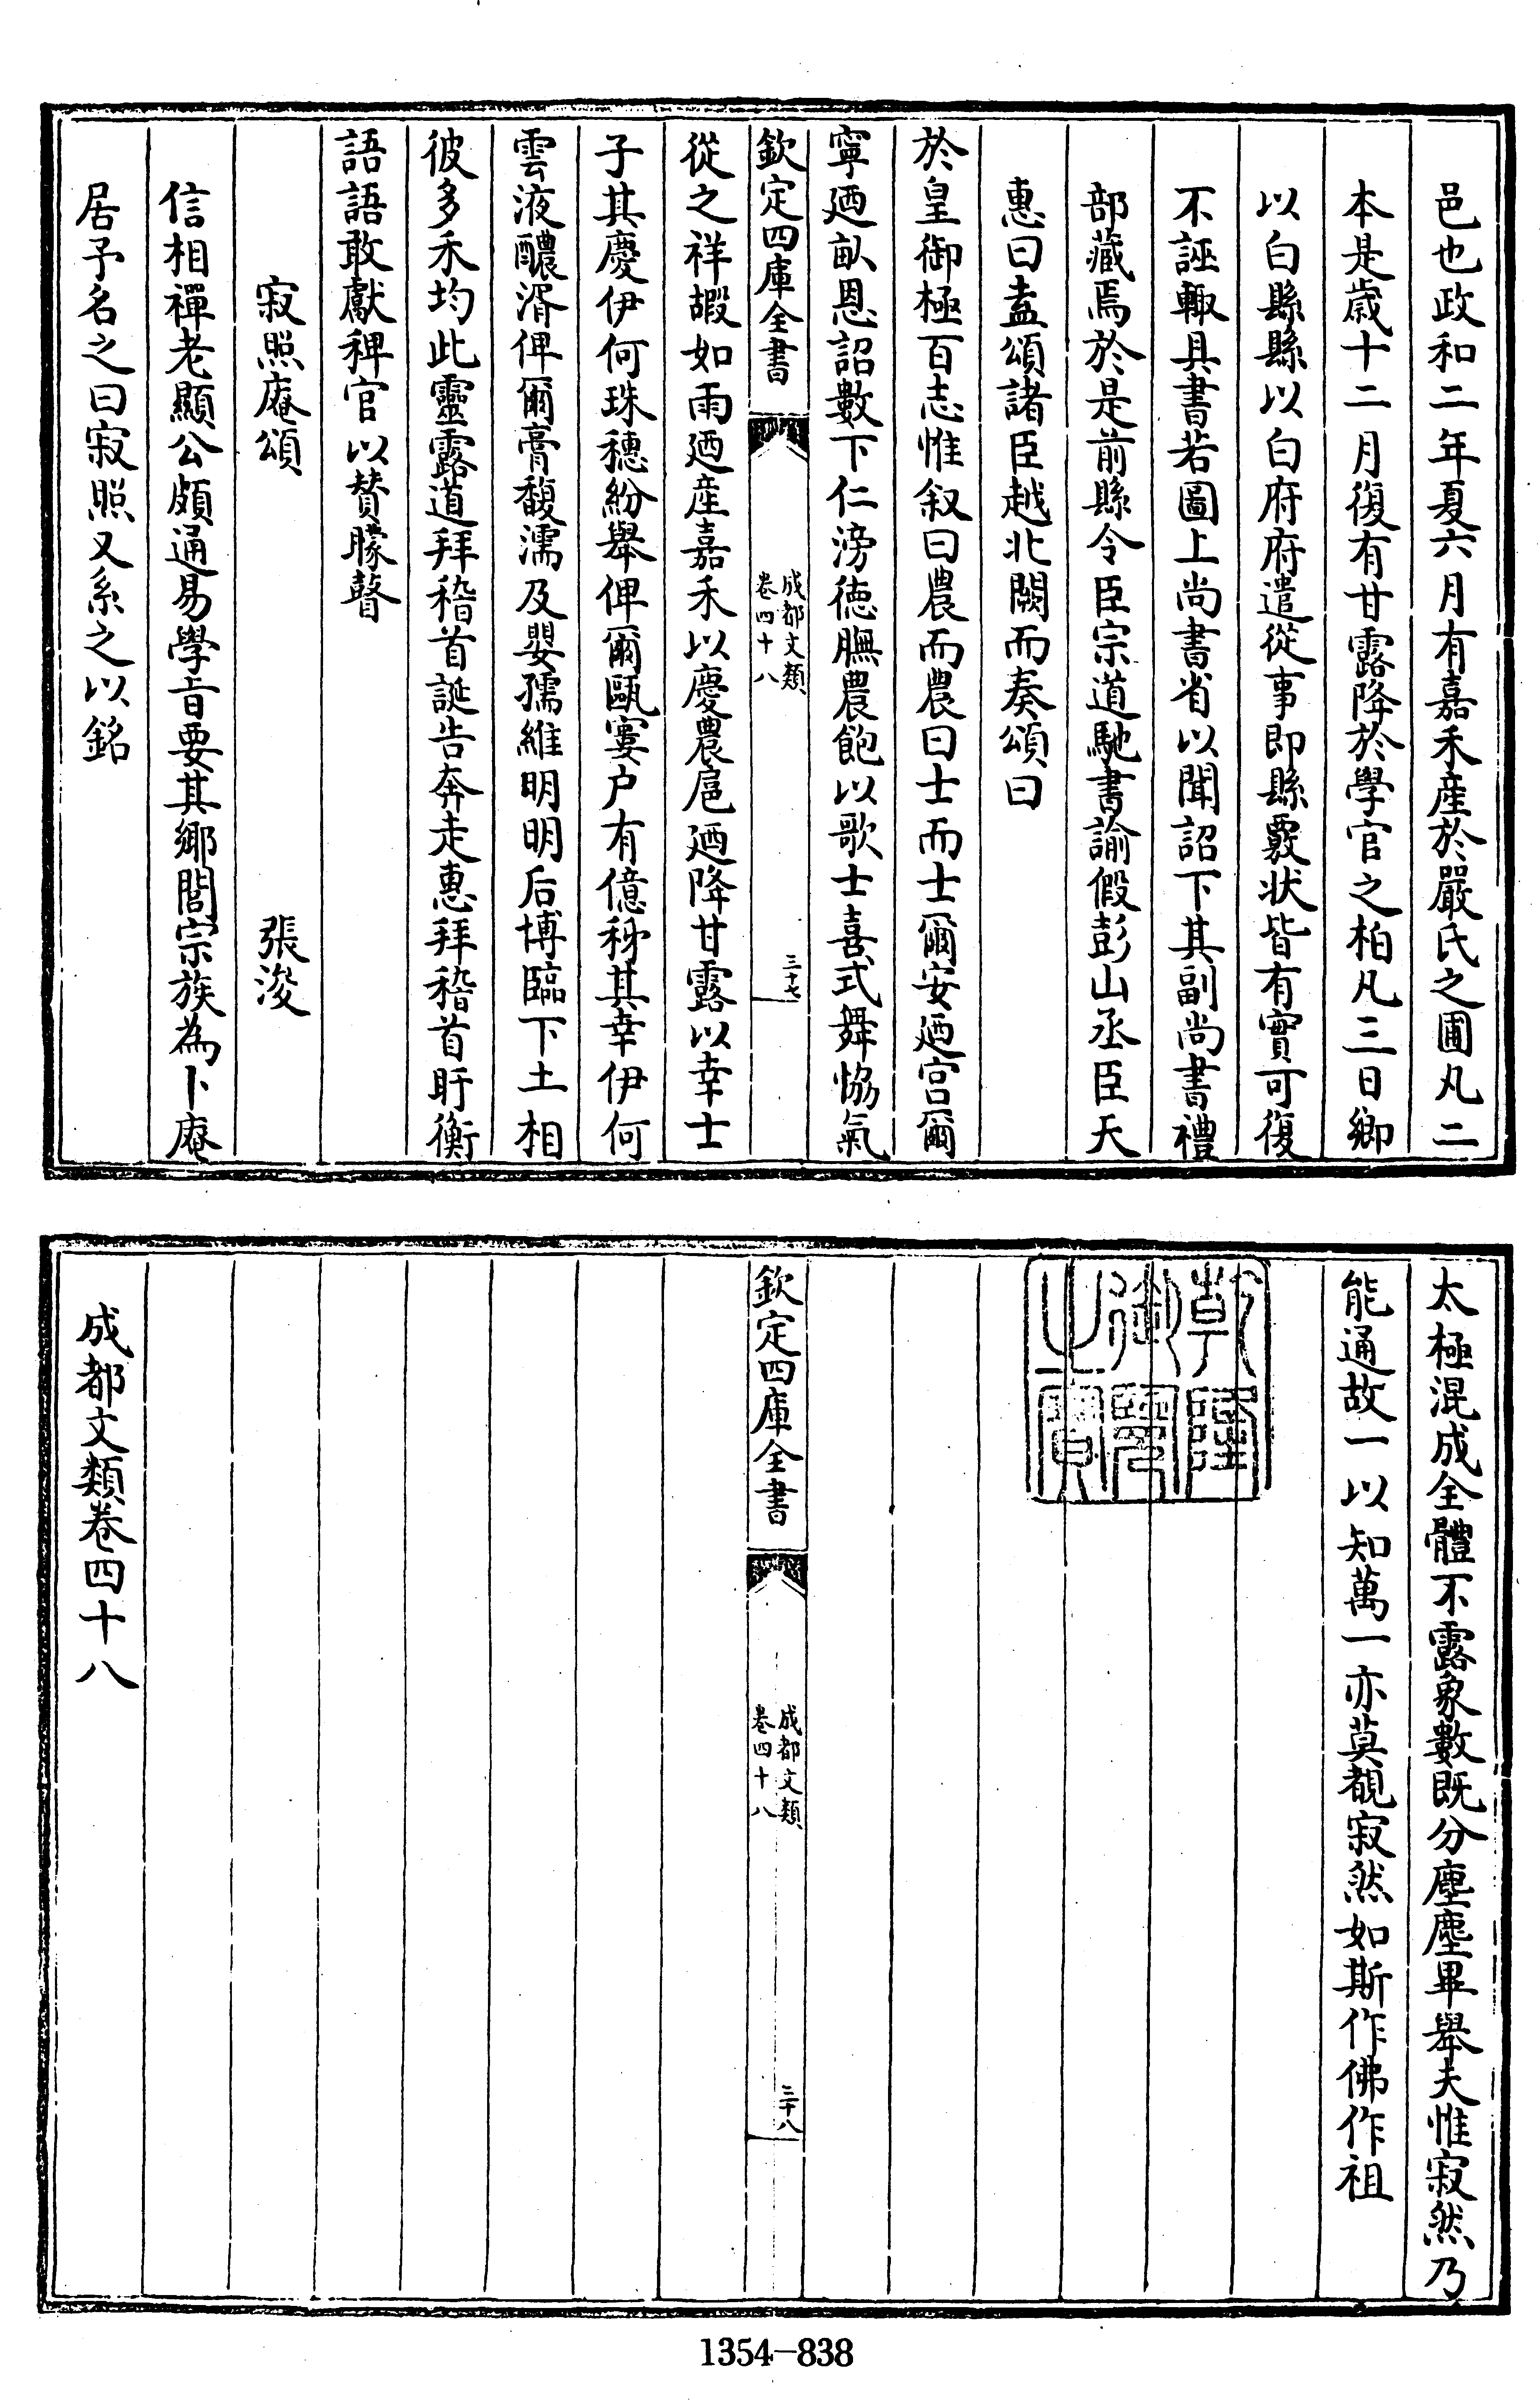 邑也政和二年夏六月有嘉禾産於嚴氏之圃凡二
本是歲十二月復有甘露降於學官之柏凡三日鄉
以白縣縣以白府府遣從事即縣覈状皆有實可復
不誣輙具書若圖上尚書省以聞詔下其副尚書禮
部藏焉於是前縣令臣宗道馳書諭假彭山丞臣天
惠曰盍頌諸臣越北闕而奏頌曰
於皇御極百志惟叙曰農而農曰士而士爾安廼宫爾
寧廼畝恩詔數下仁滂徳膴農飽以歌士喜式舞恊氣
欽定四庫全書
成都文類
卷四十八
三十七
從之祥嘏如雨廼産嘉禾以慶農扈廼降甘露以幸士
子其慶伊何珠穗紛舉俾爾甌窶户有億秭其幸伊何
雲液醲湑俾爾膏馥濡及嬰孺維明明后博臨下土相
彼多禾均此靈露道拜稽首誕告奔走惠拜稽首盱衡
語語敢獻稗官以賛矇瞽
寂照庵頌
張浚
信相禪老顯公頗通易學旨要其鄉閭宗族為卜庵
居予名之曰寂照又系之以銘
太極混成全體不露象數既分塵塵畢舉夫惟寂然乃
能通故一以知萬一亦莫覩寂然如斯作佛作祖
乾隆御覽之寶
欽定四庫全書
成都文類
卷四十八
三十八
成都文類卷四十八
1354-838